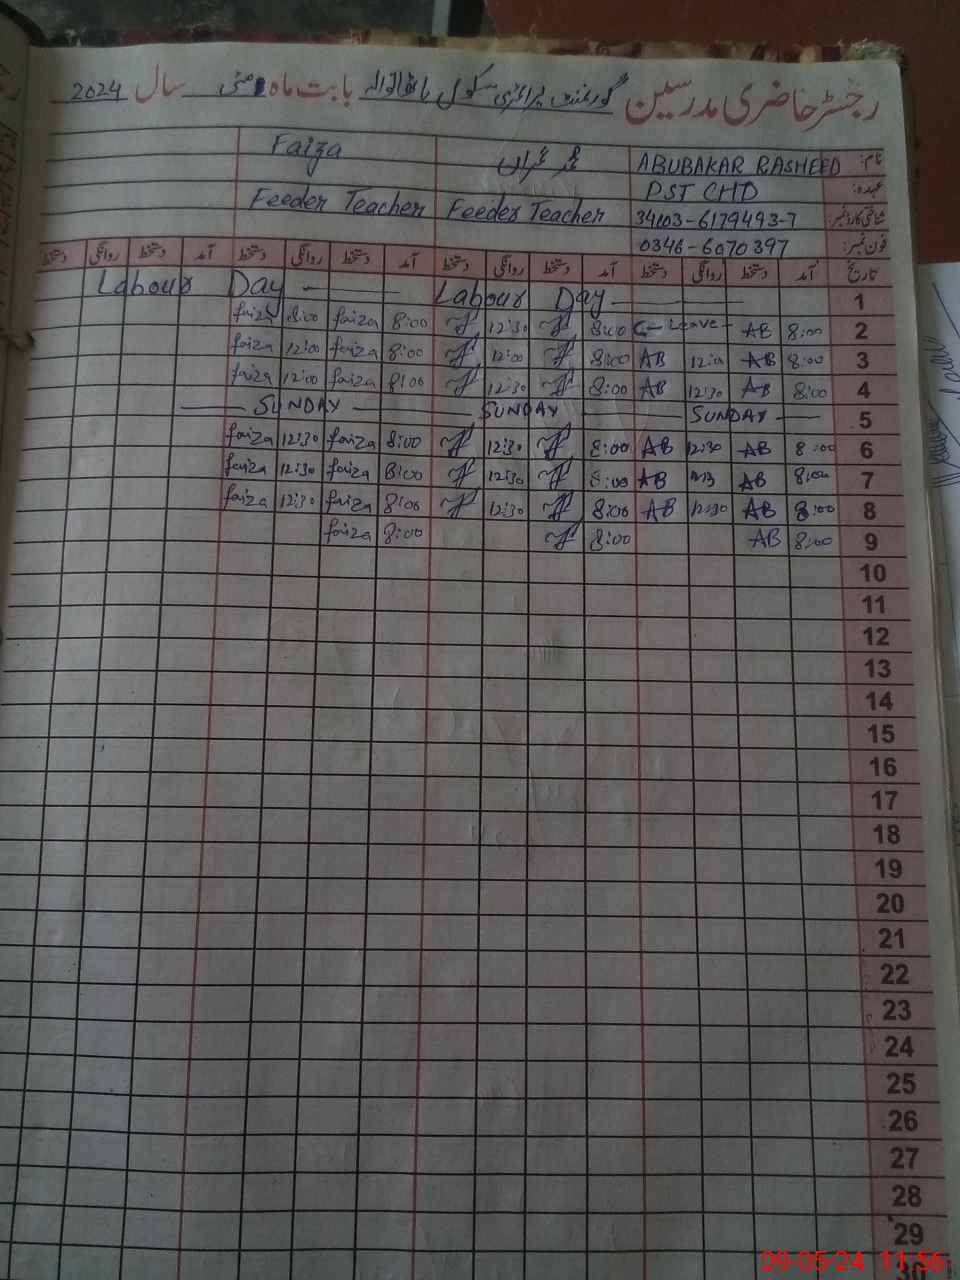 رجسٹر حاضری مدرسین گورنمنٹ پرائمری سکول بابت ماہ مئی سال 2024
نام: ABUBAKAR RASHEED Faiza
عہدہ: PST CHD
شناختی کارڈ نمبر 34103-6179493-7 Feeder Teacher Feeder Teacher
فون نمبر: 0346-6070397
تاریخ آمد دستخط روانگی دستخط آمد دستخط روانگی دستخط آمد دستخط روانگی دستخط آمد دستخط روانگی دستخط
1 Labour Day Labour Day
2 8:00 AB Leave 8:00 12:30 8:00 faiza 8:00 faiza
3 8:00 AB 12:00 AB 8:00 12:00 8:00 faiza 12:00 faiza
4 8:00 AB 12:30 AB 8:00 12:30 8:00 faiza 12:00 faiza
5 SUNDAY SUNDAY SUNDAY
6 8:00 AB 12:30 AB 8:00 12:30 8:00 faiza 12:30 faiza
7 8:00 AB AB 8:00 12:30 8:00 faiza 12:30 faiza
8 8:00 AB 12:30 AB 8:00 12:30 8:00 faiza 12:30 faiza
9 8:00 AB 8:00 8:00 faiza
10
11
12
13
14
15
16
17
18
19
20
21
22
23
24
25
26
27
28
29
09-05-24 11:56